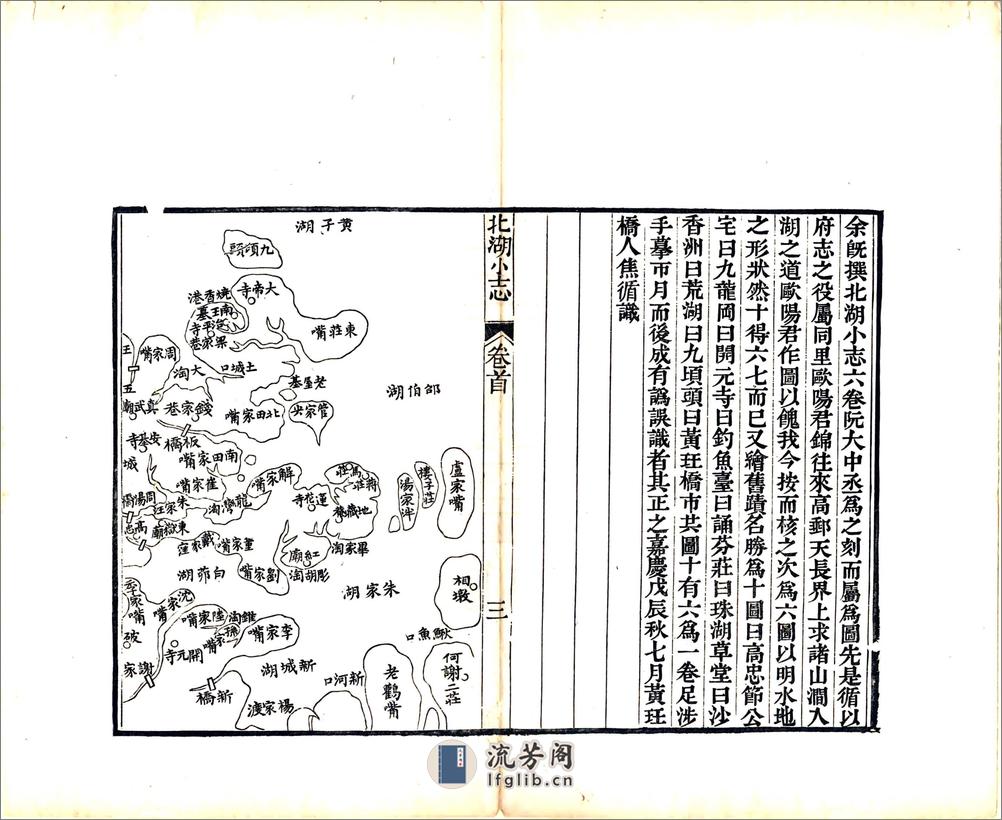 余旣撰北湖小志六卷阮大中丞爲之刻而屬爲圖先是循以
府志之役屬同里歐陽君錦往來高郵天長界上求諸山澗入
湖之道歐陽君作圖以餽我今按而核之次爲六圖以明水地
之形狀然十得六七而已又繪舊蹟名勝爲十圖曰高忠節公
宅曰九龍岡曰開元寺曰釣魚臺曰誦芬莊曰珠湖草堂曰沙
香洲曰荒湖曰九頃頭曰黃玨橋市共圖十有六爲一卷足涉
手摹帀月而後成有譌誤識者其正之嘉慶戊辰秋七月黃玨
橋人焦循識
北湖小志
卷首
三
黃子湖
九頃頭
大帝寺
東莊嘴
燒香港
南王墓
梁家巷
土城口
周家嘴
大淘
老墅墓
邵伯湖
真武廟
錢家巷
北田家嘴
管家尖
板橋
南田家嘴
崔家嘴
解家嘴
龍灣淘
朱家莊
東嶽廟
戴家窪
董家嘴
白茆湖
劉家嘴
紅廟
彫胡淘
畢家淘
蓮花寺
地藏菴
馬莊
蔣莊
樓子莊
湯家泮
盧家嘴
相墩
朱家湖
李家嘴
沈家嘴
陸家嘴
李家嘴
開元寺
謝家
新橋
新城湖
楊家渡
新河口
老鸛嘴
鰍魚口
何謝二莊
流芳阁
lfglib.cn